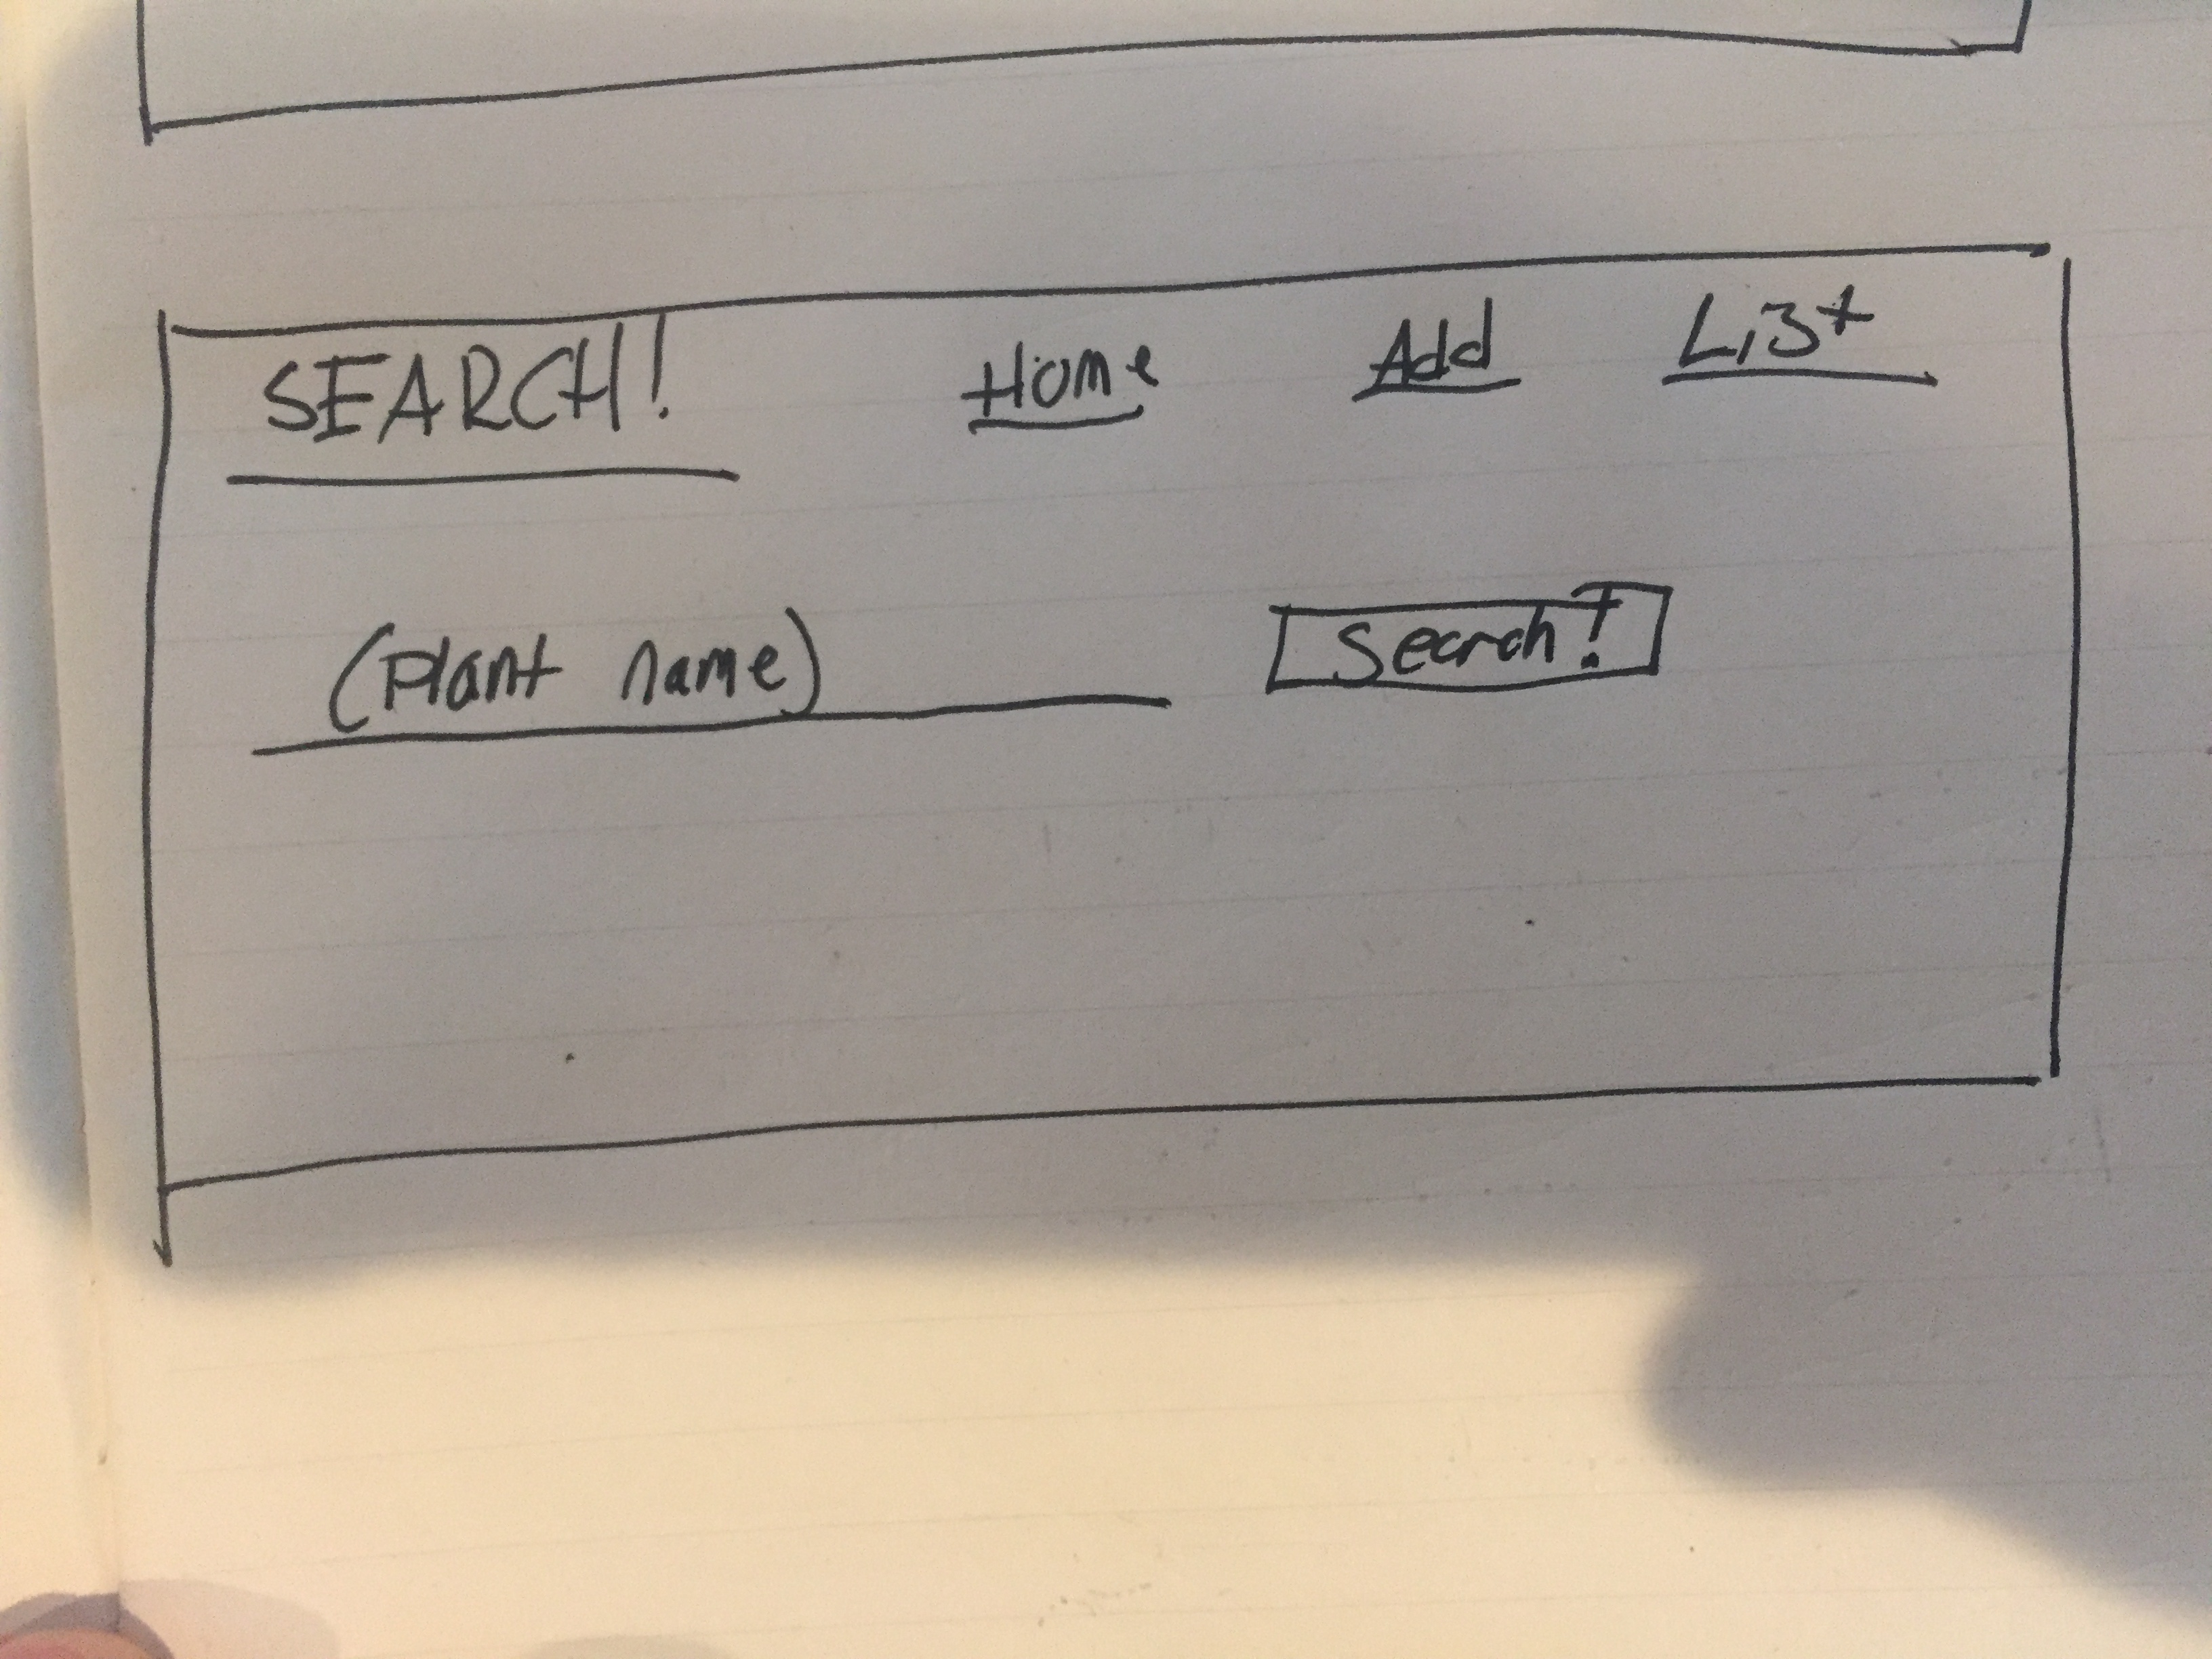 SEARCH! Home Add List
(Plant name) Secrah!